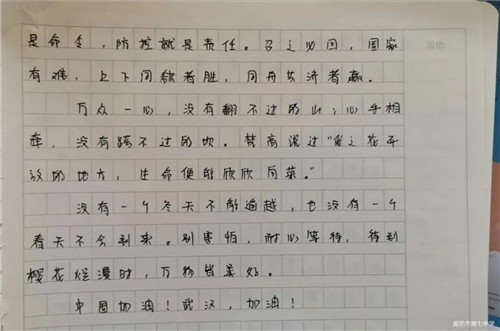 是命令，防控就是责任。召之必回，国家
有难，上下同欲者胜，同舟共济者赢。
万众一心，没有翻不过的山；心手相
连，没有跨不过的坎。梵高说过“爱之花开
放的地方，生命便能欣欣向荣。”
没有一个冬天不能逾越，也没有一个
春天不会到来。别害怕，耐心等待，待到
樱花烂漫时，万物皆美好。
中国加油！武汉，加油！